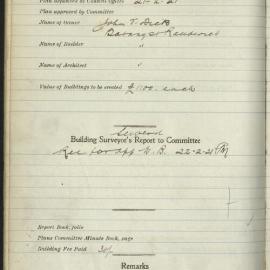 Plan deposited at Council's Office 21-2-21
Plan approved by Committee
Name of Owner John T. Dick
Darany St Randwick
Name of Builder "
Name of Architect "
Value of Buildings to be erected £1100. each
Second
Building Surveyor's Report to Committee
Rec for app 22-2-21
Report Book, folio
Plans Committee Minute Book, page
Building Fee Paid 30/-
Remarks